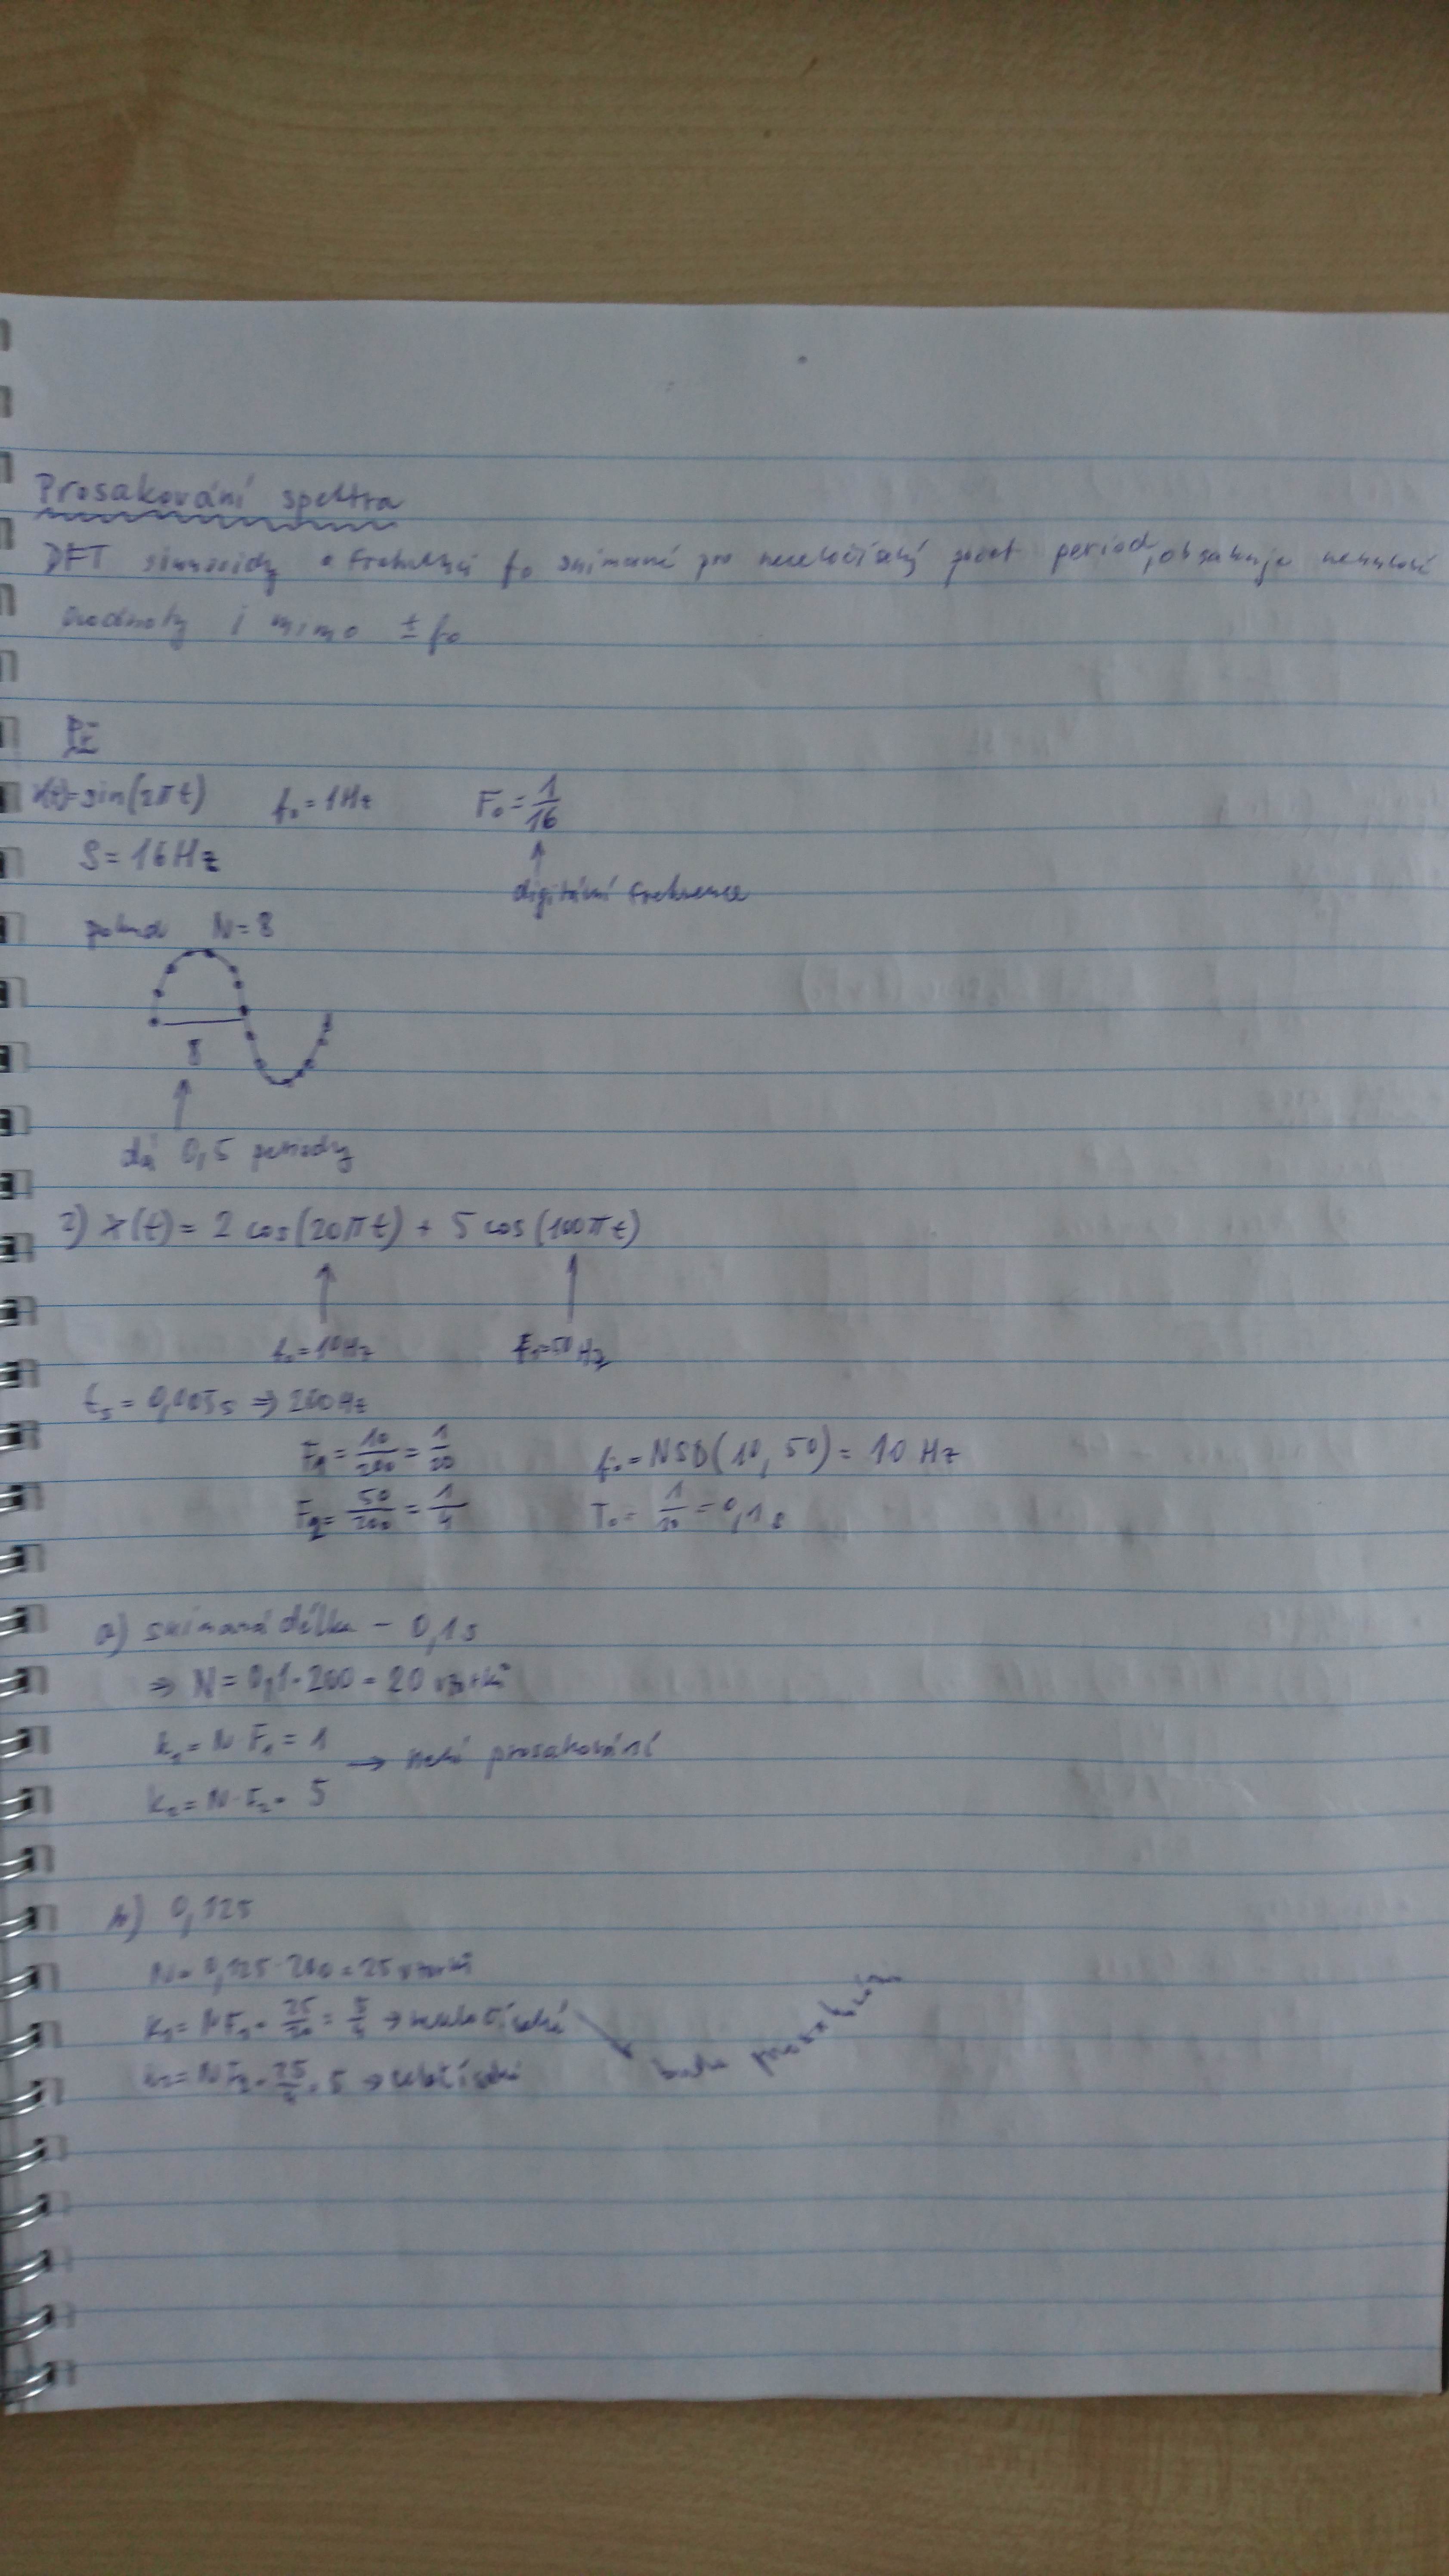 Prosakování spektra
DFT sinusoidy o frekvenci f₀ snímané pro neceločíselný počet period, obsahuje nenulové
hodnoty i mimo ± f₀
Př
x(t)=sin(2πt) f₀ = 1Hz F₀ = 1/16
S = 16Hz
digitální frekvence
pokud N = 8
8
dá 0,5 periody
2) x(t) = 2 cos(20πt) + 5 cos(100πt)
f₀=10Hz f₁=50Hz
tₛ = 0,005s ⇒ 200Hz
F₁ = 10/200 = 1/20 f₀ = NSD(10, 50) = 10 Hz
F₂ = 50/200 = 1/4 T₀ = 1/10 = 0,1s
a) snímaná délka - 0,1s
⇒ N = 0,1·200 = 20 vzorků
k₁ = N F₁ = 1
→ není prosakování
k₂ = N·F₂ = 5
b) 0,125
N = 0,125·200 = 25 vzorků
k₁ = N F₁ = 25/20 = 5/4 → neceločíselné
bude prosakování
k₂ = N F₂ = 25/ = 5 → celočíselné